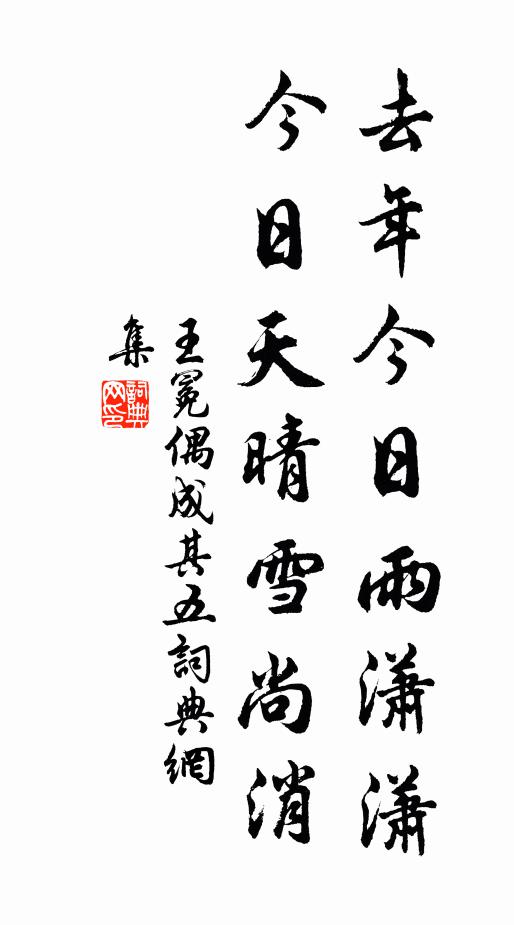 去年今日雨瀟瀟
今日天晴雪尚消
王冕偶成其五詞典網
集
詞典网印